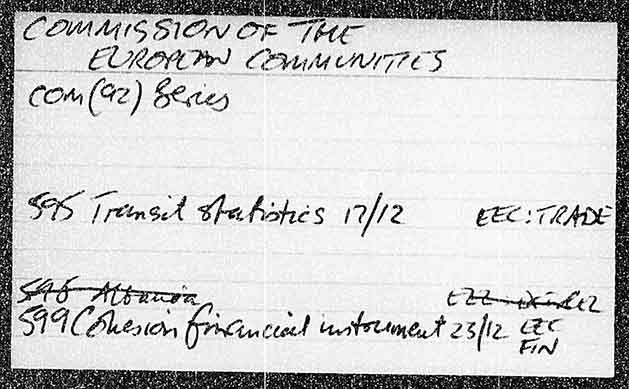 COMMISSION OF THE
EUROPEAN COMMUNITIES
COM(92) Series
595 Transit statistics 17/12 EEC: TRADE
596 Albania
599 Cohesion financial instrument 23/12 EEC
FIN